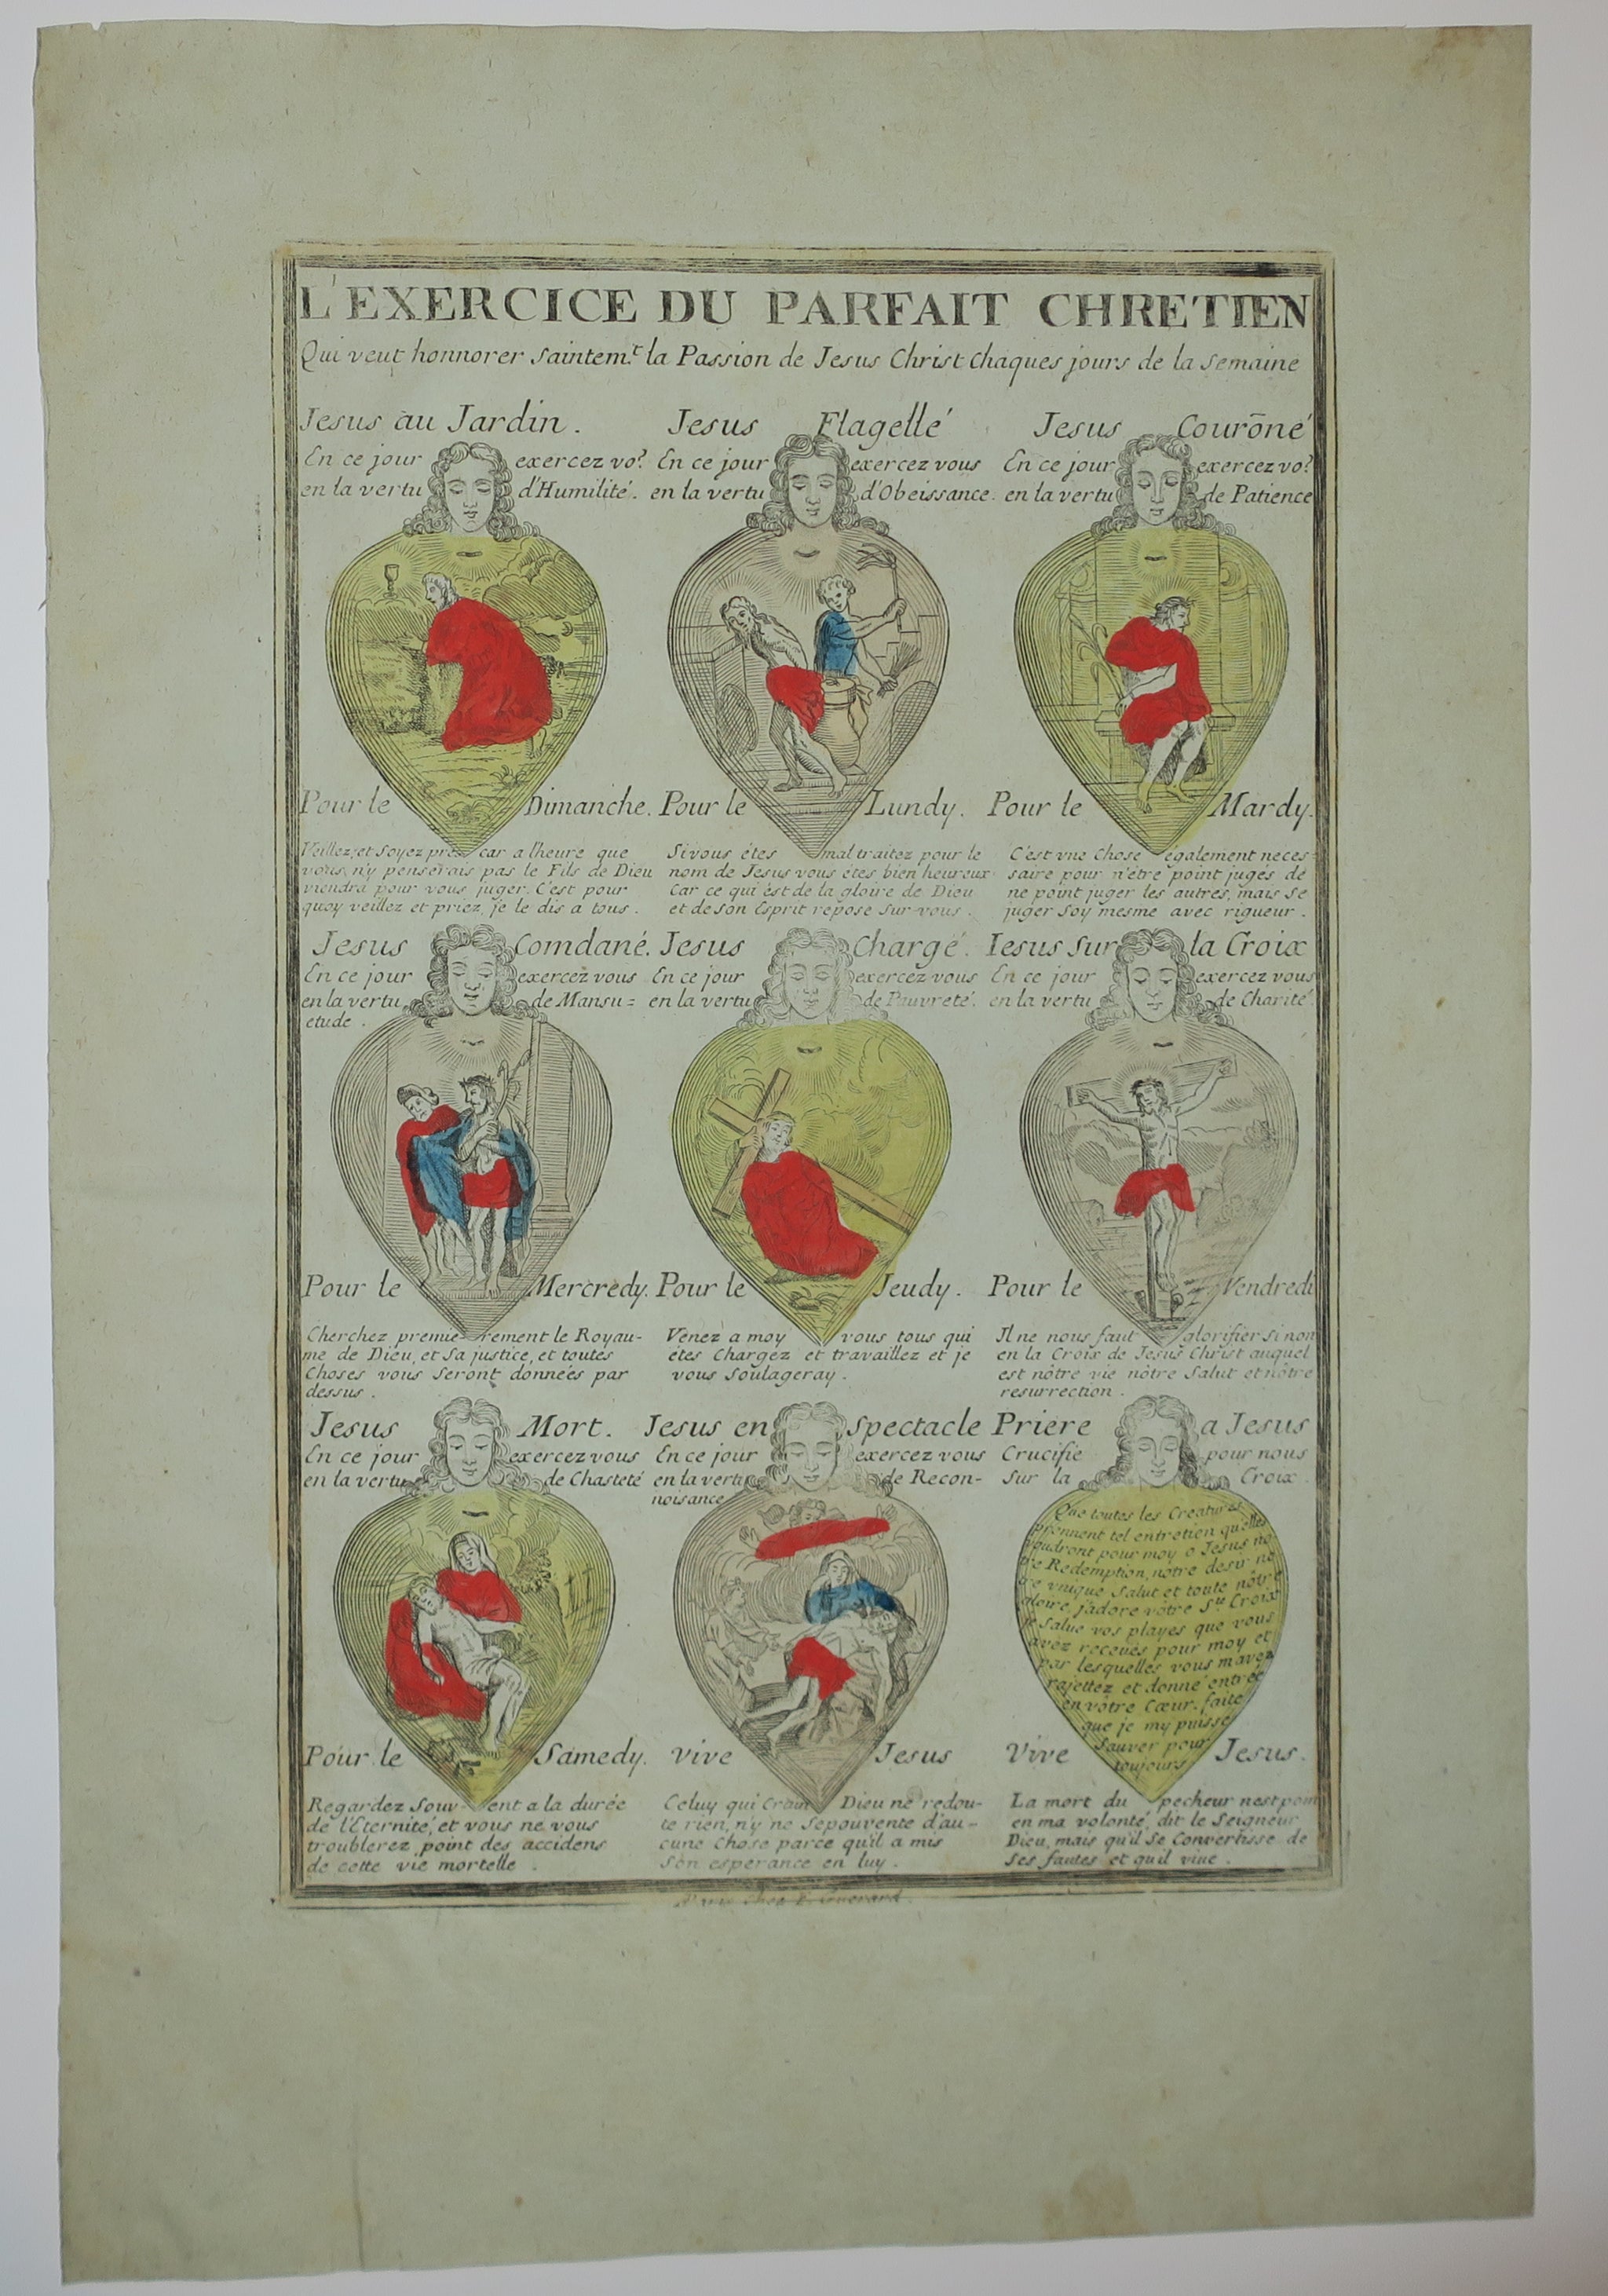 L'EXERCICE DU PARFAIT CHRETIEN
Qui veut honnorer saintem.t la Passion de Jesus Christ Chaques jours de la Semaine
Jesus au Jardin.
En ce jour exercez vo?
en la vertu d'Humilité.
Pour le Dimanche.
Veillez, et Soyez prest car a l'heure que
vous n'y penserais pas le Fils de Dieu
viendra pour vous juger. C'est pour
quoy veillez et priez, je le dis a tous.
Jesus Flagellé
En ce jour exercez vous
en la vertu d'Obeissance.
Pour le Lundy.
Si vous étes mal traitez pour le
nom de Jesus vous étes bien heureux
Car ce qui ést de la gloire de Dieu
et de son Esprit repose Sur vous.
Jesus Courõné
En ce jour exercez vo?
en la vertu de Patience
Pour le Mardy.
C'est vne Chose également neces=
saire pour n'étre point jugés de
ne point juger les autres, mais Se
juger Soy mesme avec rigueur.
Jesus Comdané.
En ce jour exercez vous
en la vertu de Mansu=
etude.
Pour le Mercredy.
Cherchez premie-rement le Royau-
me de Dieu, et Sa justice, et toutes
Choses vous Seront données par
dessus.
Jesus Chargé.
En ce jour exercez vous
en la vertu de Pauvreté.
Pour le Jeudy.
Venez a moy vous tous qui
étes Chargez et travaillez et je
vous Soulageray.
Iesus Sur la Croix
En ce jour exercez vous
en la vertu de Charité.
Pour le Vendredi
Il ne nous faut glorifier Si non
en la Croix de Jesus Christ auquel
est nôtre vie nôtre Salut et nôtre
resurrection.
Jesus Mort.
En ce jour exercez vous
en la vertu de Chasteté
Pour le Samedy.
Regardez Souv-ent a la durée
de l'Eternité, et vous ne vous
troublerez point des accidens
de cette vie mortelle.
Jesus en Spectacle
En ce jour exercez vous
en la vertu de Recon-
noisance
Vive Jesus
Celuy qui Craint Dieu ne redou-
te rien, n'y ne Sepouvente d'au-
cune Chose parce qu'il a mis
Son esperance en luy.
Priere a Jesus
Crucifie pour nous
Sur la Croix.
Que toutes les Creatures
prennent tel entretien quelles
voudront pour moy o Jesus no
tre Redemption, nôtre desir no
tre vnique Salut et toute nôtre
gloire, j'adore vôtre Ste Croix
je Salue vos playes que vous
avez receues pour moy et
par lesquelles vous mavez
rajettez et donné entrée
en vôtre Cœur. faite
que je my puisse
Sauver pour
toujours
Vive Jesus.
La mort du pecheur nest point
en ma volonté, dit le Seigneur
Dieu, mais qu'il Se Convertisse de
Ses fautes et quil vive.
Paris Chez F. Guerard